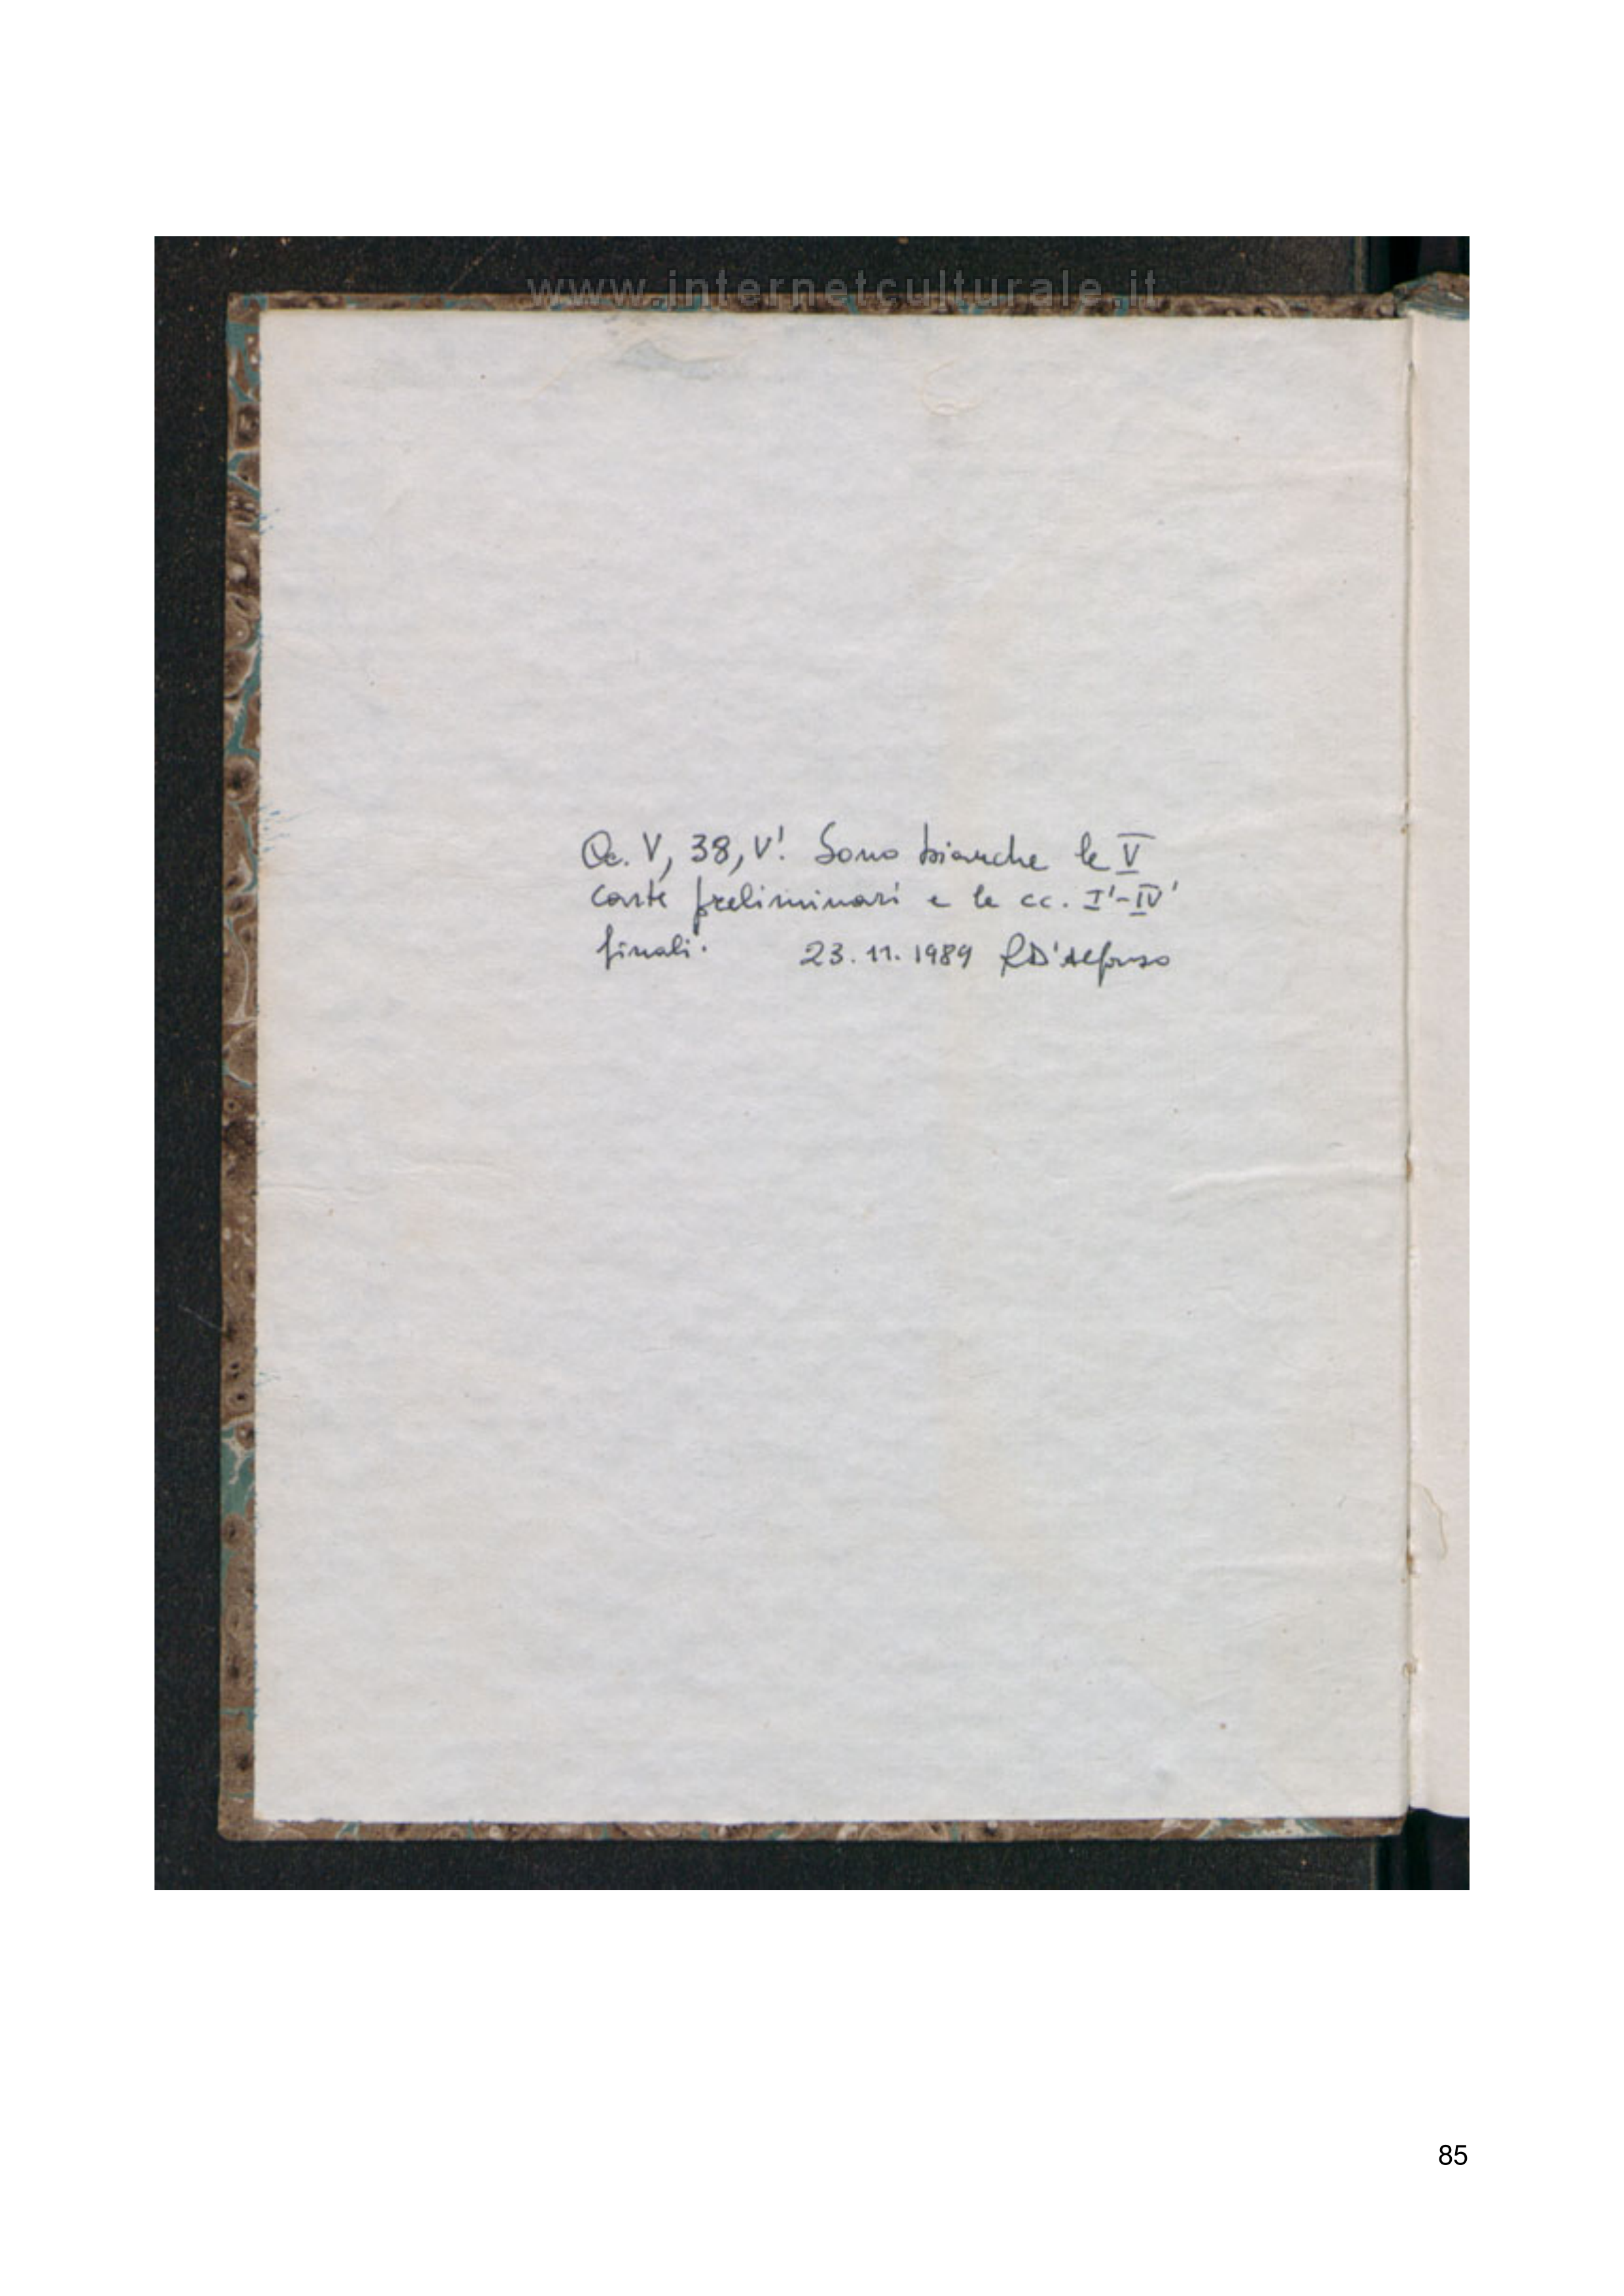 www.internetculturale.it
Cc. V, 38, V'. Sono bianche le V
carte preliminari e le cc. I'-IV'
finali. 23.11.1989 RD'Alfonso
85